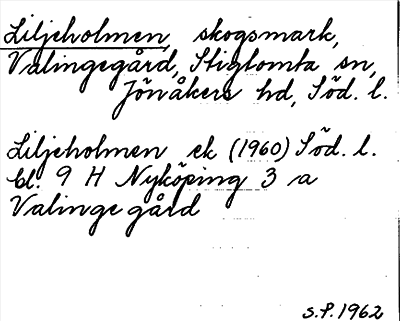 Liljeholmen, skogsmark,
Valingegård, Stigtomta sn,
Jönåkers hd, Söd. l.
Liljeholmen ek (1960) Söd. l.
bl. 9 H Nyköping 3 a
Valinge gård
S.P. 1962